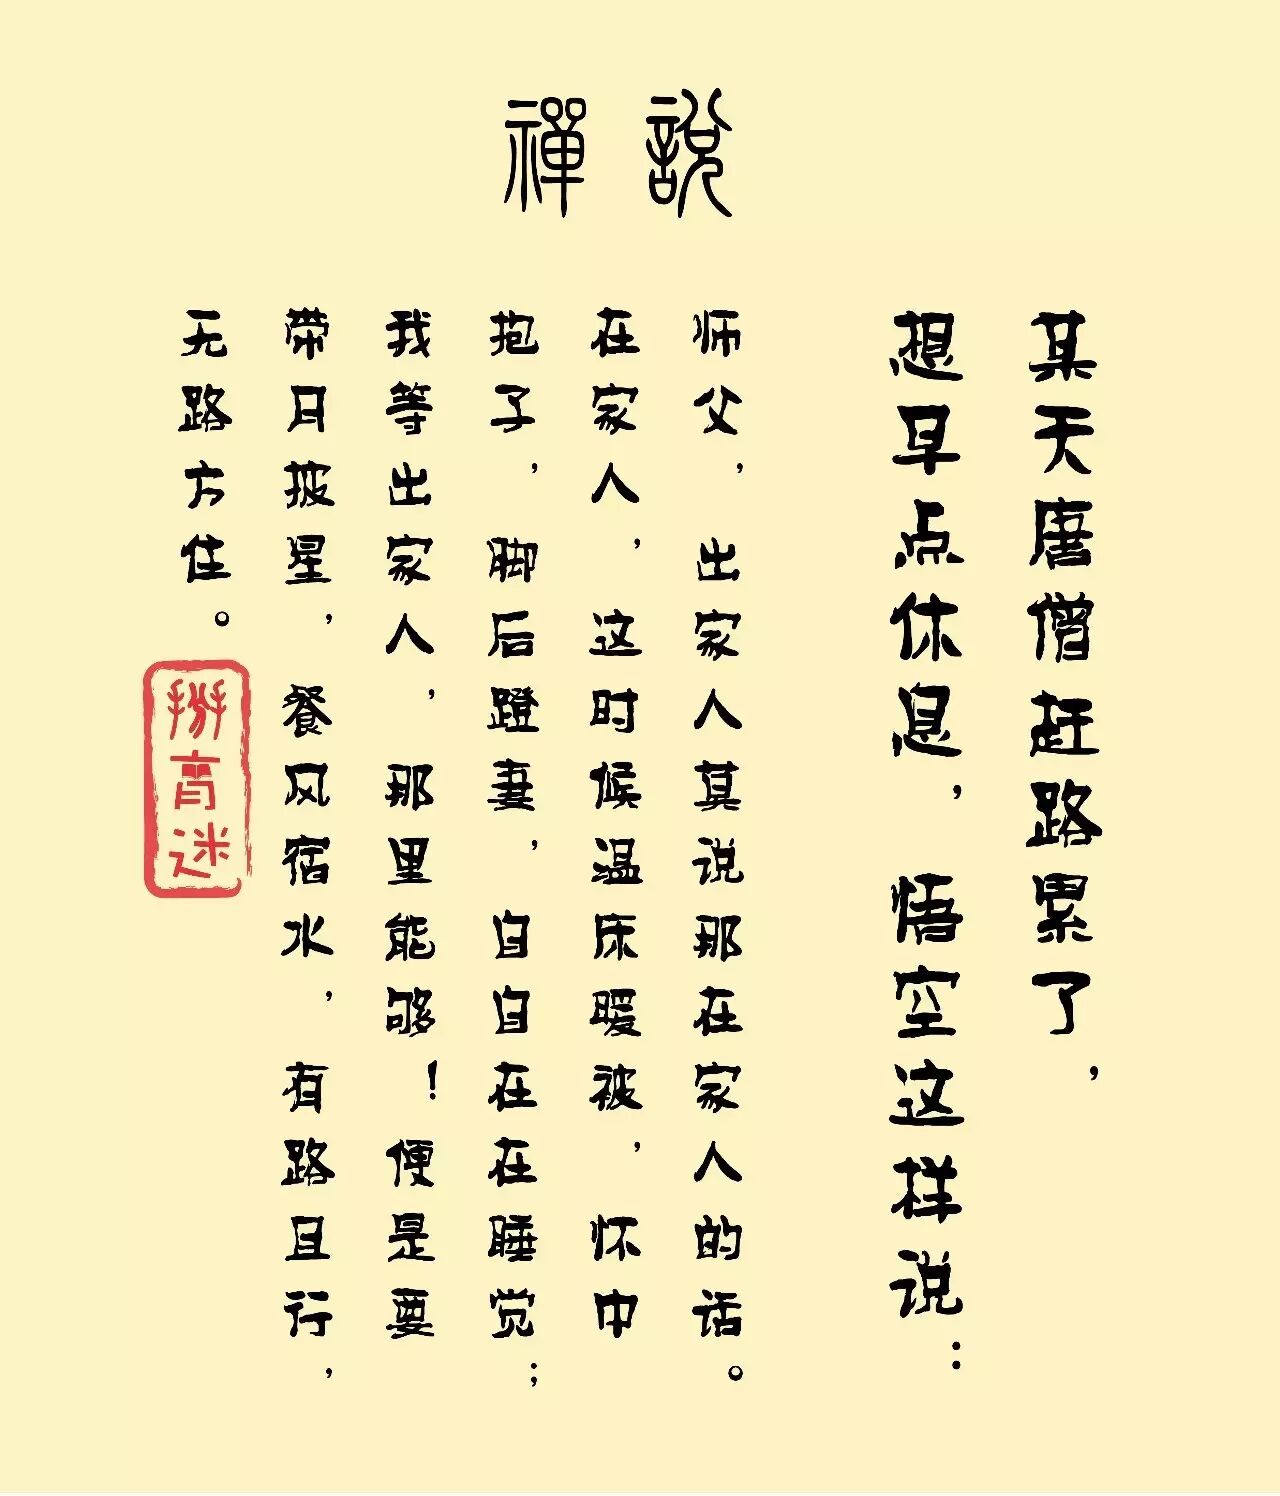 說禪
某天唐僧赶路累了，
想早点休息，悟空这样说：
师父，出家人莫说那在家人的话。
在家人，这时候温床暖被，怀中
抱子，脚后蹬妻，自自在在睡觉；
我等出家人，那里能够！便是要
带月披星，餐风宿水，有路且行，
无路方住。